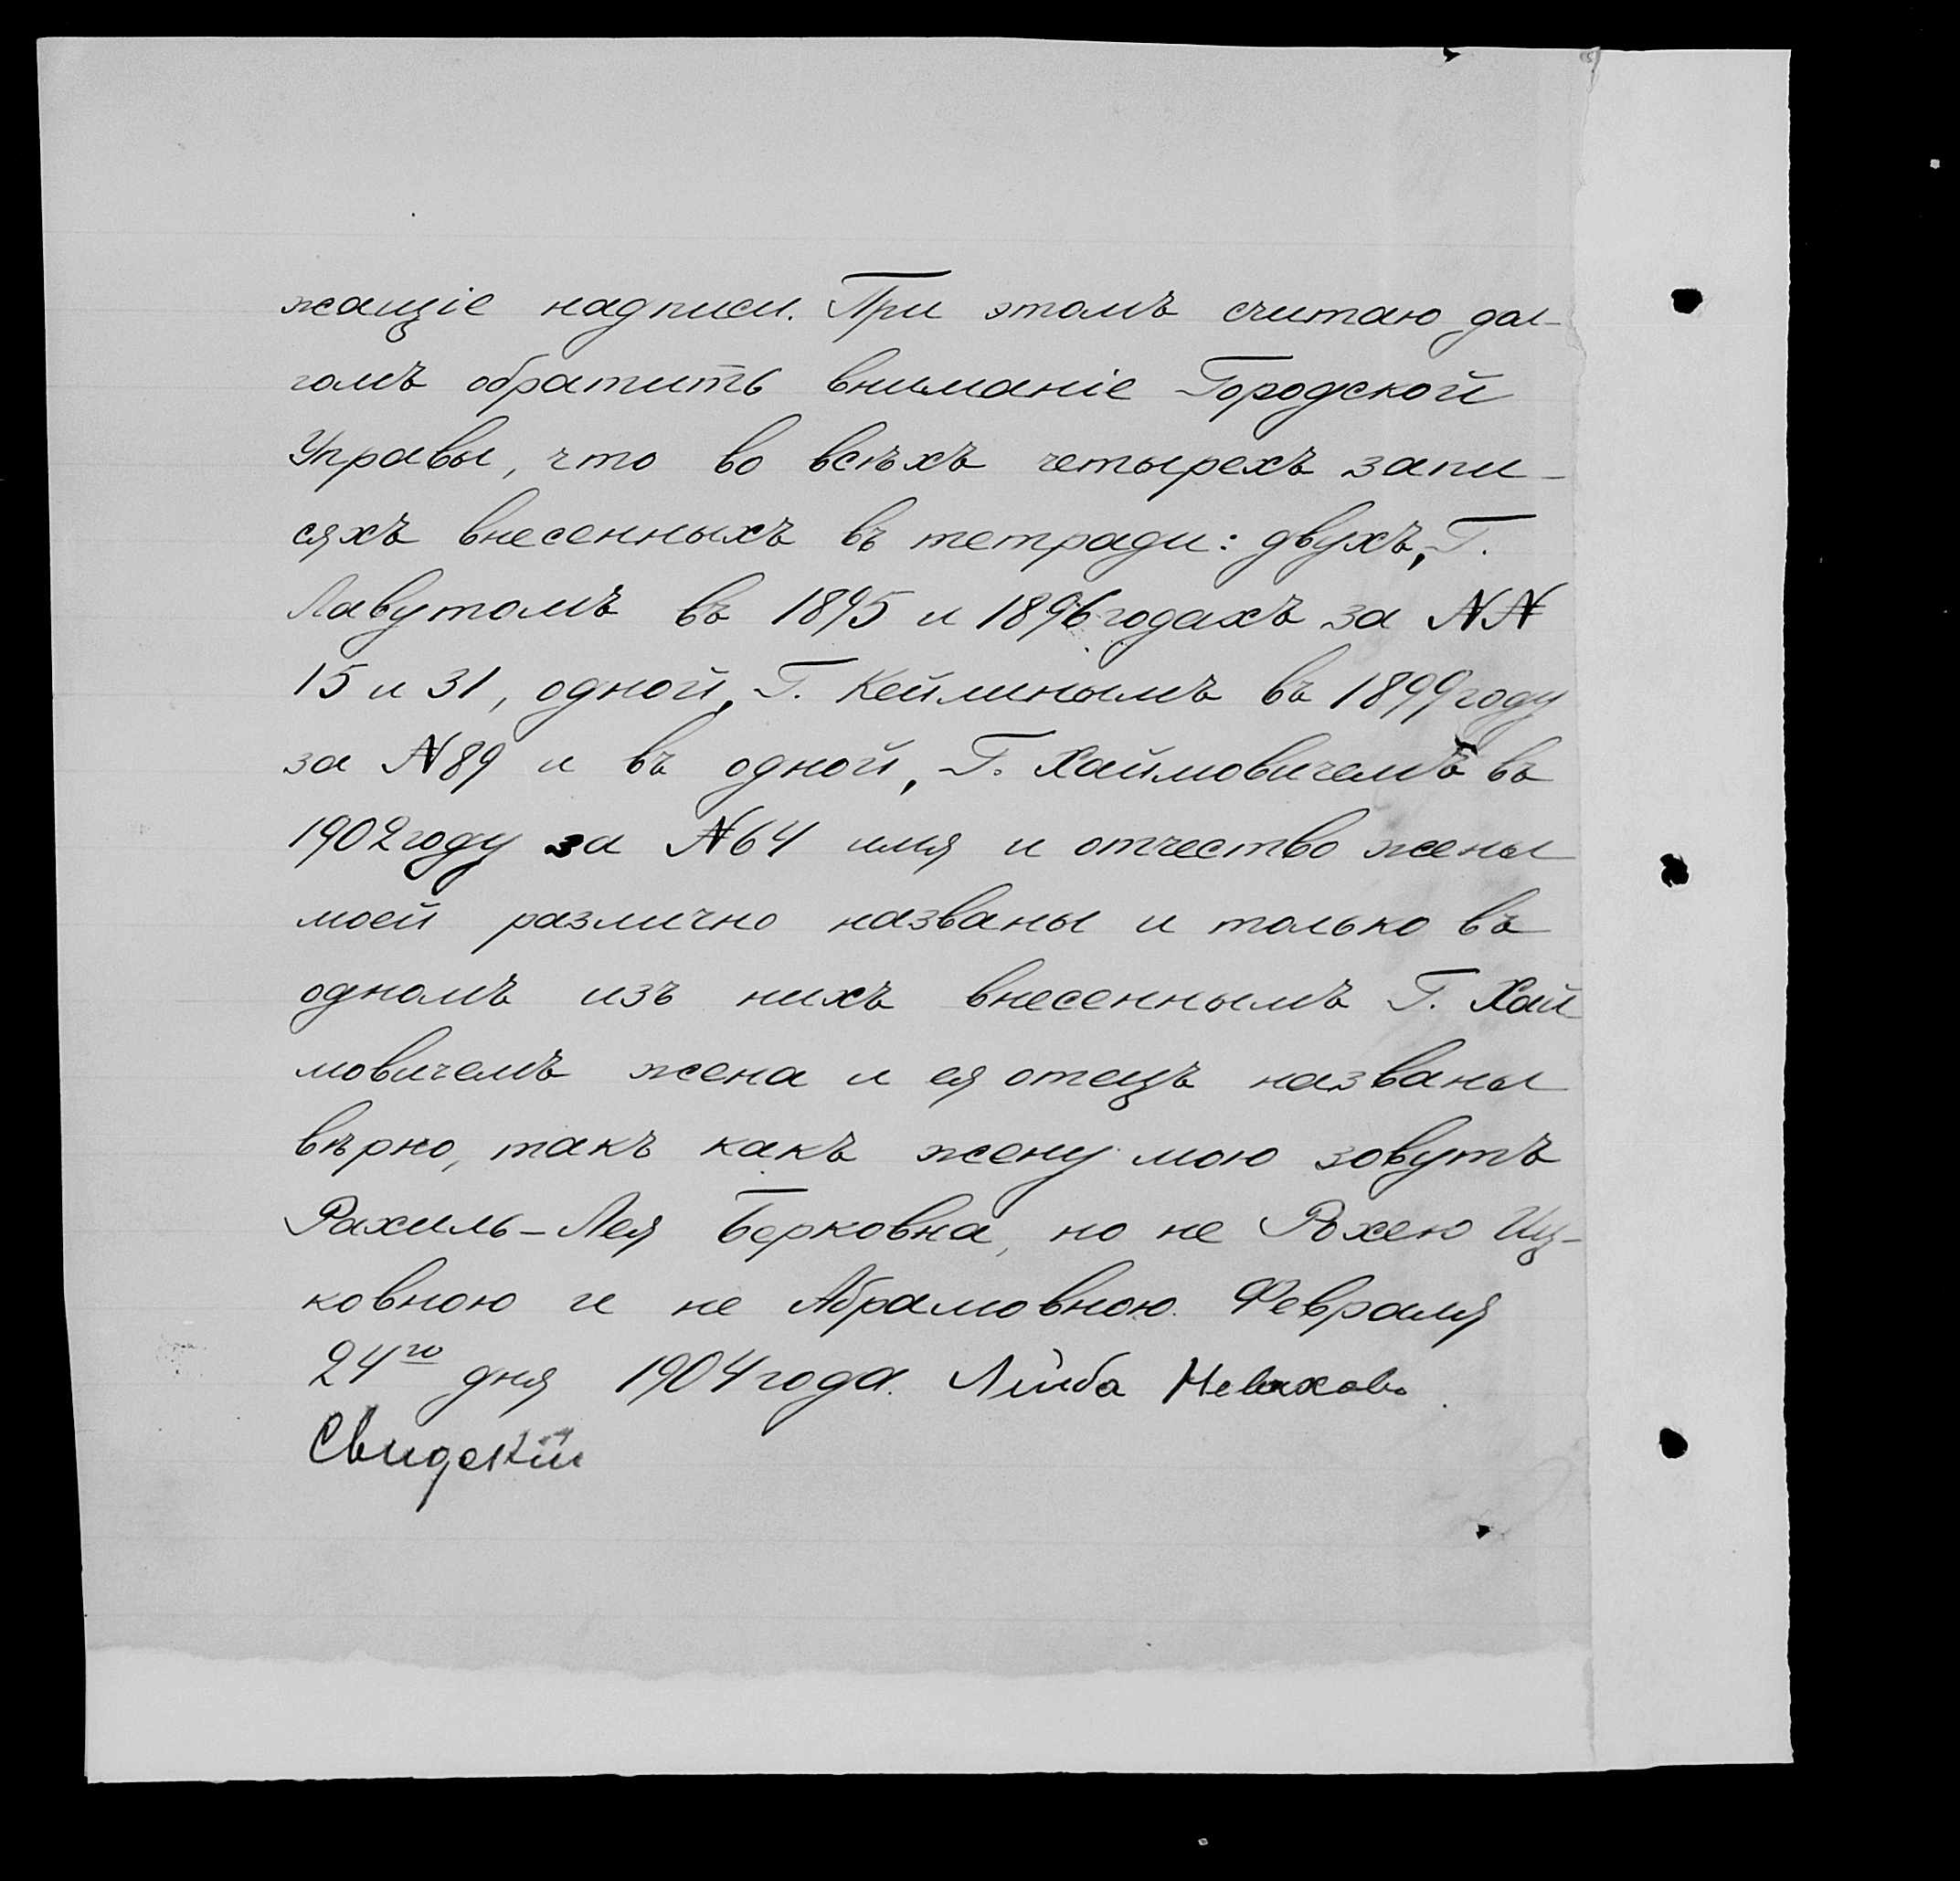 жащіе надписи. При этомъ считаю дол-
гомъ обратить вниманіе Городской
Управы, что во всѣхъ четырехъ запи-
сяхъ внесенныхъ въ тетради: двухъ, Г.
Лавутомъ въ 1895 и 1896 годахъ за NN
15 и 31, одной, Г. Кейлинымъ въ 1899 году
за N 89 и въ одной, Г. Хаймовичемъ въ
1902 году за N 64 имя и отчество жены
моей различно названы и только въ
одномъ изъ нихъ внесеннымъ Г. Хай
мовичемъ жена и ея отецъ названы
вѣрно, такъ какъ жену мою зовутъ
Рахиль-Лея Берковна, но не Рохею Иц-
ковною и не Абрамовною. Февраля
24го дня 1904 года. Лейба Неваховъ
Свидскій